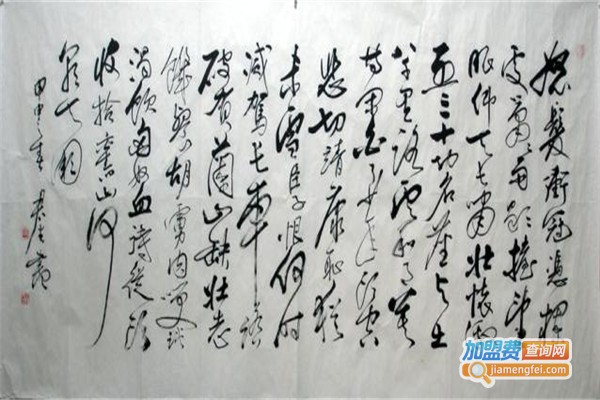 怒髮衝冠憑欄
處蕭蕭雨歇擡望
眼仰天長嘯壯懷激
烈三十功名塵與土
八千里路雲和月莫
等閒白了少年頭空
悲切靖康恥猶
未雪臣子恨何時
滅駕長車踏
破賀蘭山缺壯志
飢餐胡虜肉笑談
渴飲匈奴血待從頭
收拾舊山河
朝天闕
甲申之春
加盟费查询网
jiamengfei.com